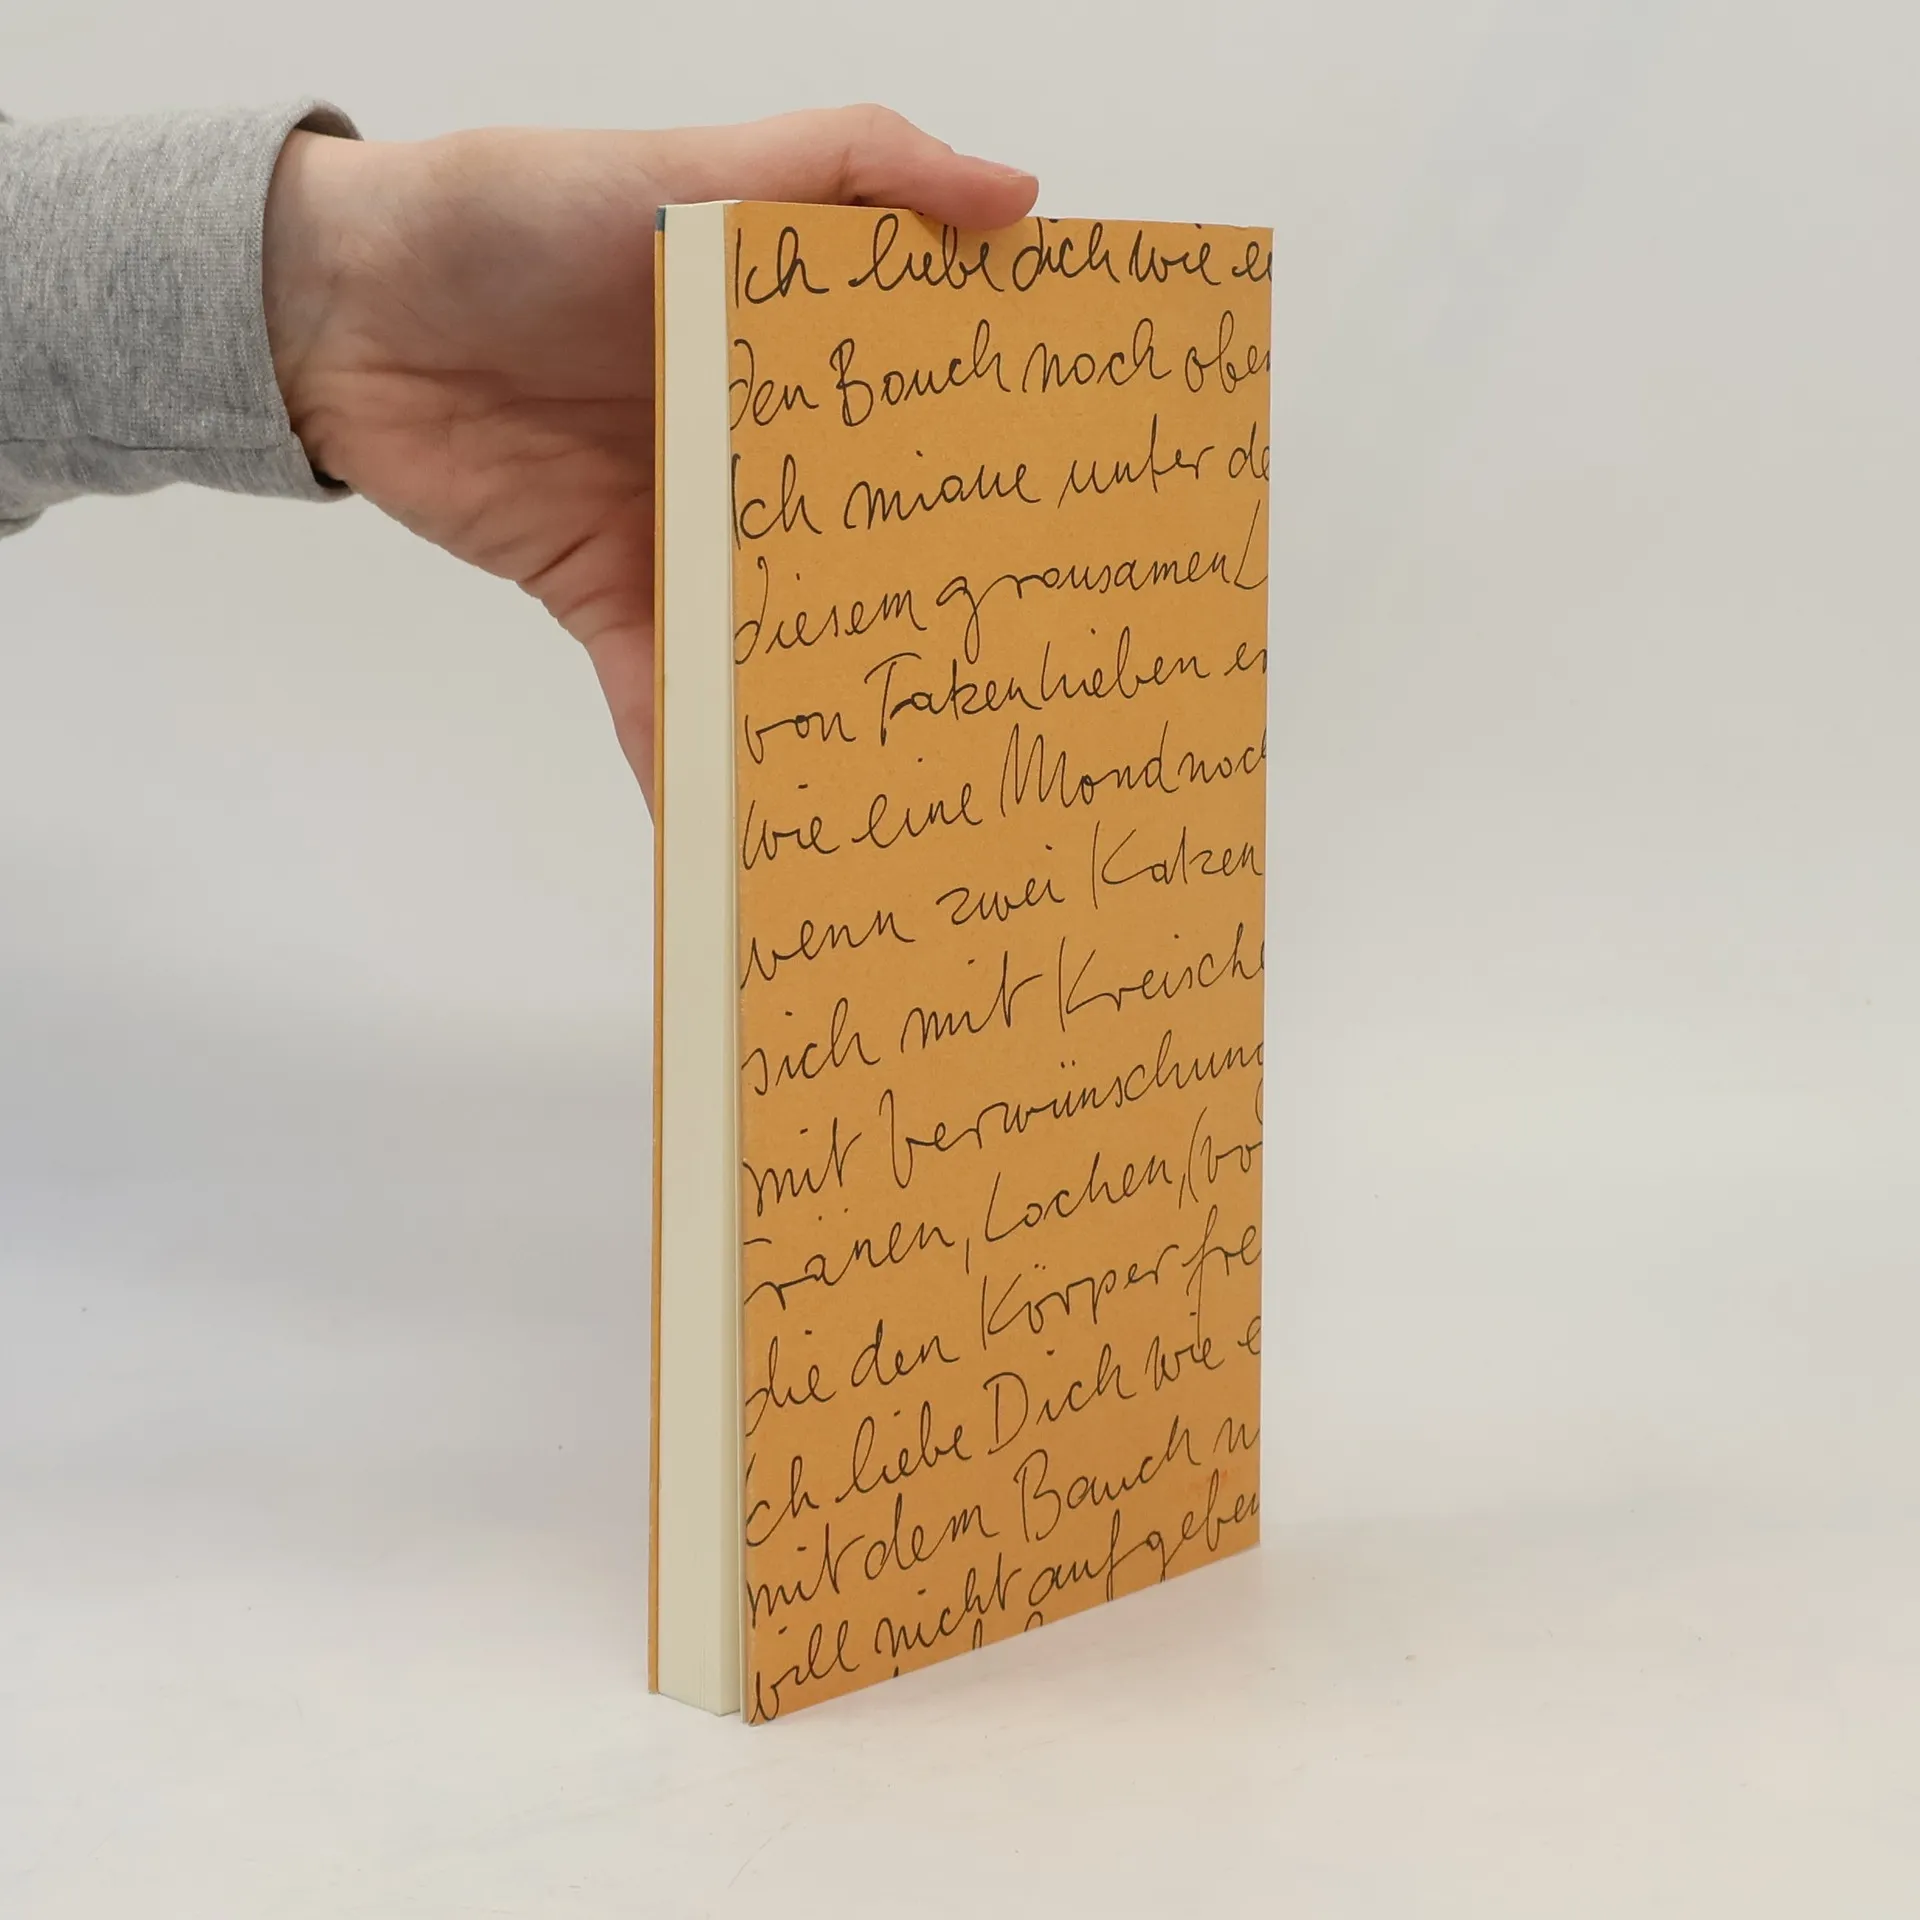 Ich liebe dich wie ei
den Bauch nach oben
Ich miaue unter de
diesem grausamen L
von Tatzenhieben er
wie eine Mondnach
wenn zwei Katzen
sich mit Kreische
mit Verwünschung
Tränen, Lachen, (vo
die den Körper fre
Ich liebe Dich wie e
mit dem Bauch n
will nicht aufgeben